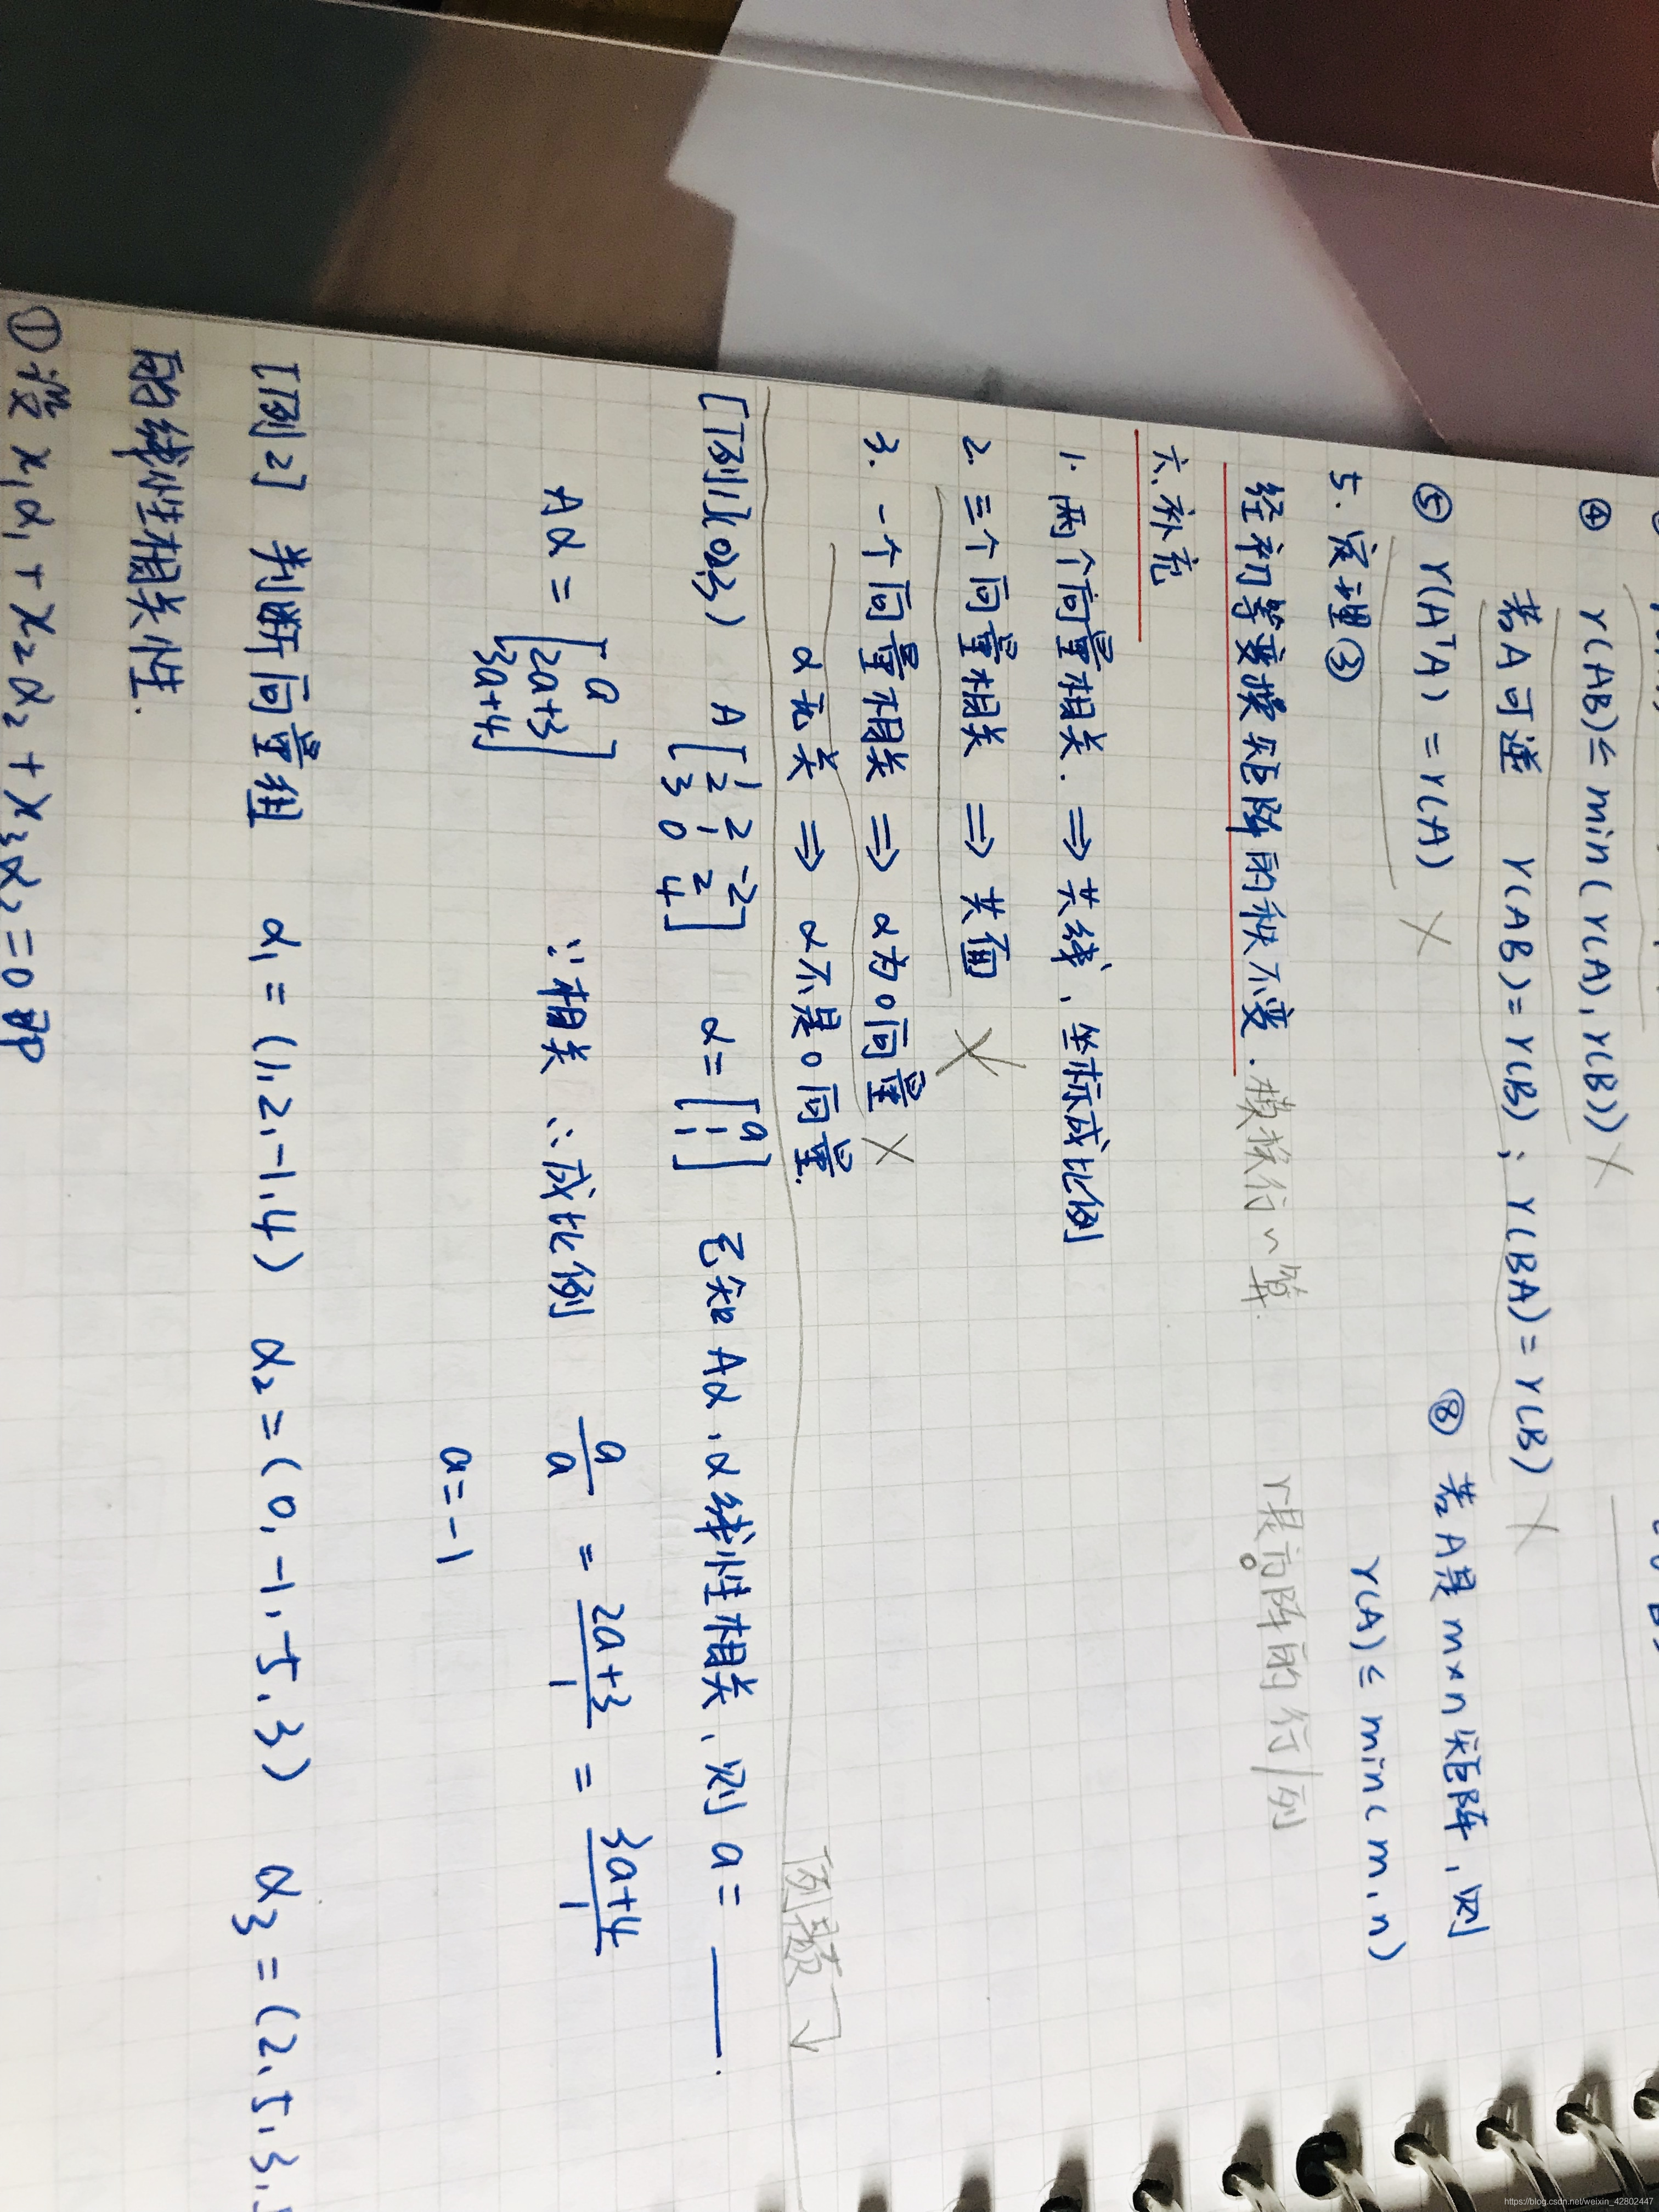 ④ r(AB)≤ min(r(A),r(B)) ×
若A可逆 r(AB)=r(B); r(BA)=r(B) ×
⑤ r(AᵀA) = r(A) ×
⑧ 若A是m×n矩阵,则
r(A)≤ min(m,n)
5.定理③
经初等变换矩阵的秩不变.
r是方阵的行/列
六.补充
1.两个向量相关. ⇒ 共线、坐标成比例
2.三个向量相关 ⇒ 共面 ×
3.一个向量相关 ⇒ α为0向量 ×
α无关 ⇒ α不是0向量.
例题↓
[例1] A [1 2 -2
2 1 2
3 0 4] α=[a
1
1] 已知Aα、α线性相关、则a=____.
Aα = [a
2a+3
3a+4] ∵相关 ∴成比例 a/a = 2a+3/1 = 3a+4/1
a=-1
[例2] 判断向量组 α₁=(1,2,-1,4) α₂=(0,-1,-5,3) α₃=(2,5,3,
的线性相关性.
①设x₁α₁+x₂α₂+x₃α₂=0即
https://blog.csdn.net/weixin_42802447